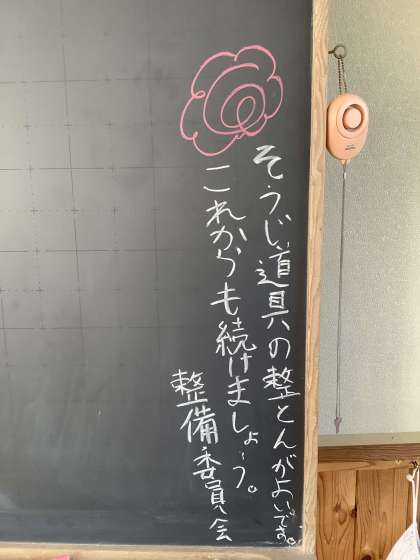 そうじ道具の整とんがよいです。
これからも続けましょう。
整備委員会